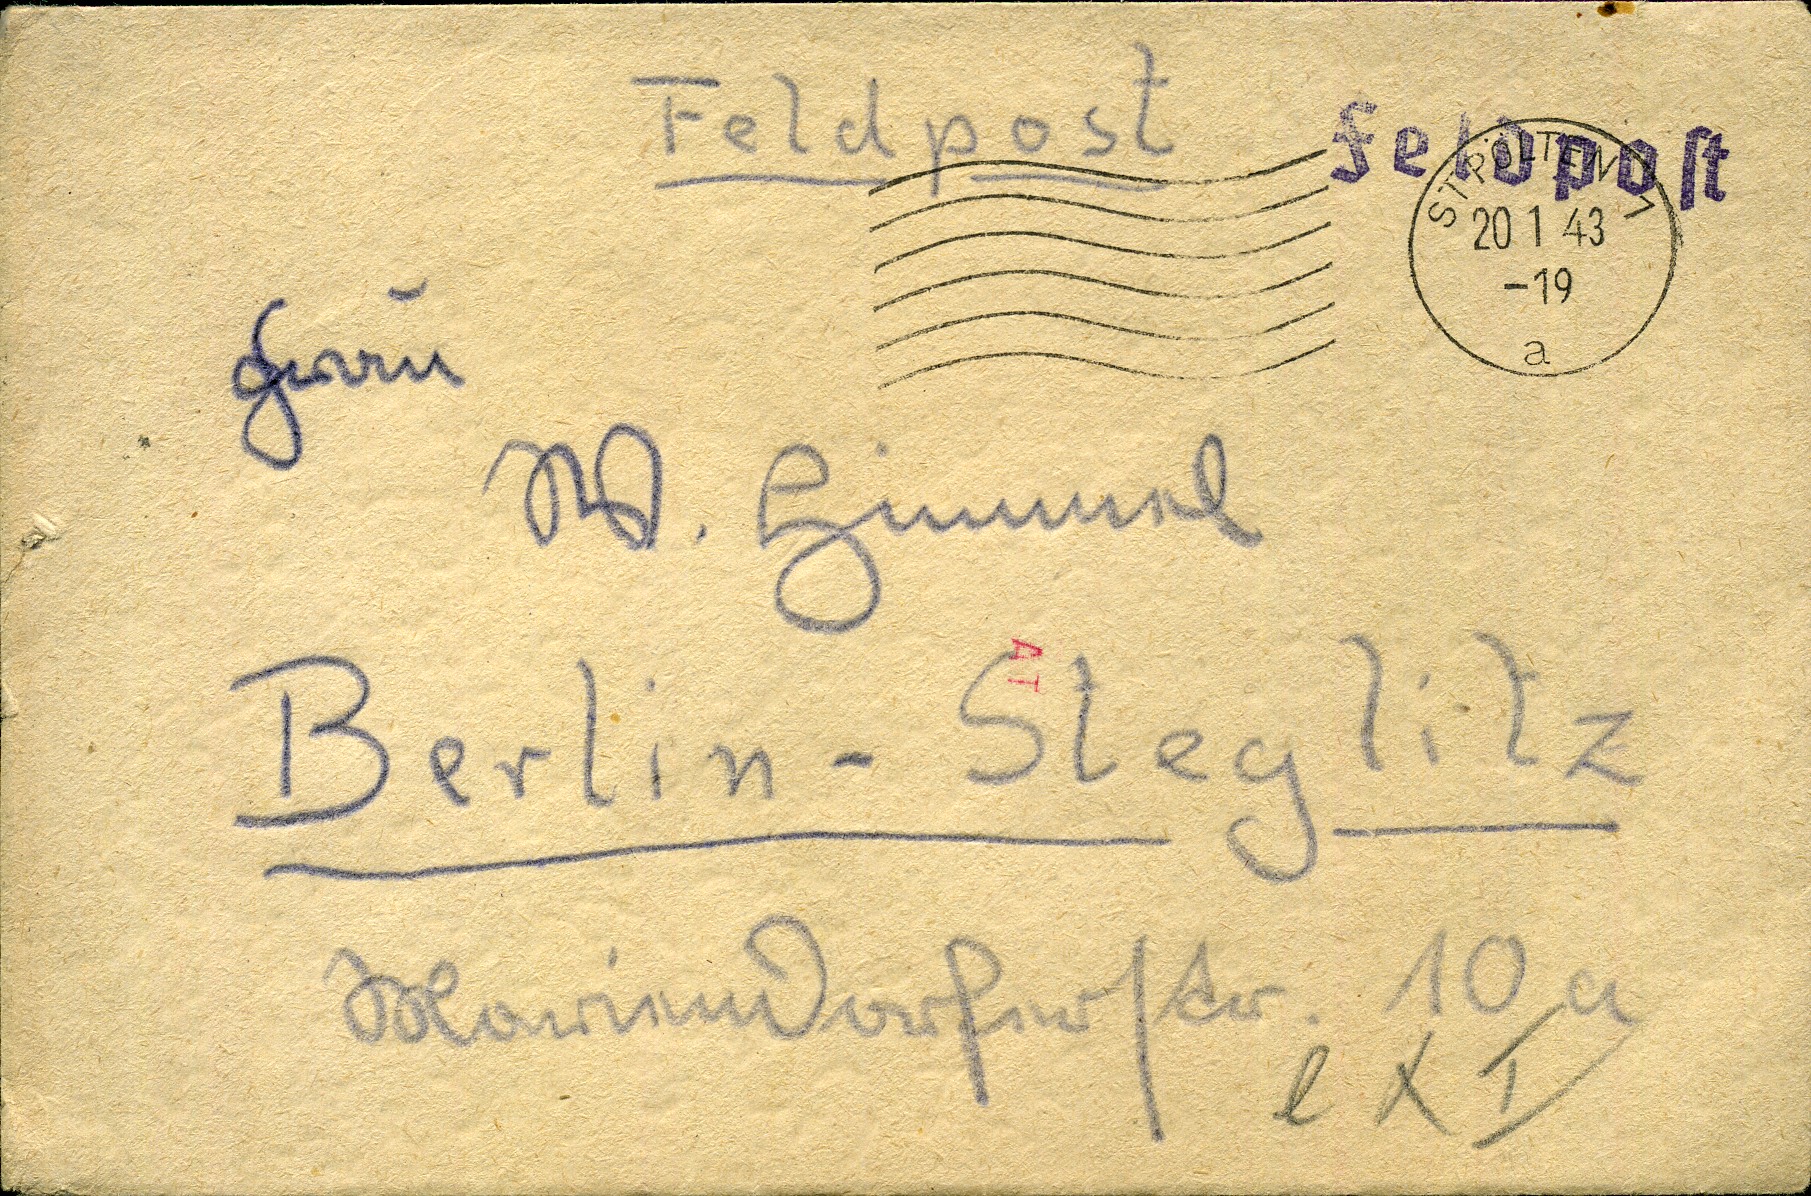 Feldpost
Feldpost
ST PÖLTEN 1
20 1 43
-19
a
Herrn
W. Himmel
AT
Berlin-Steglitz
Mariendorferstr. 10 a